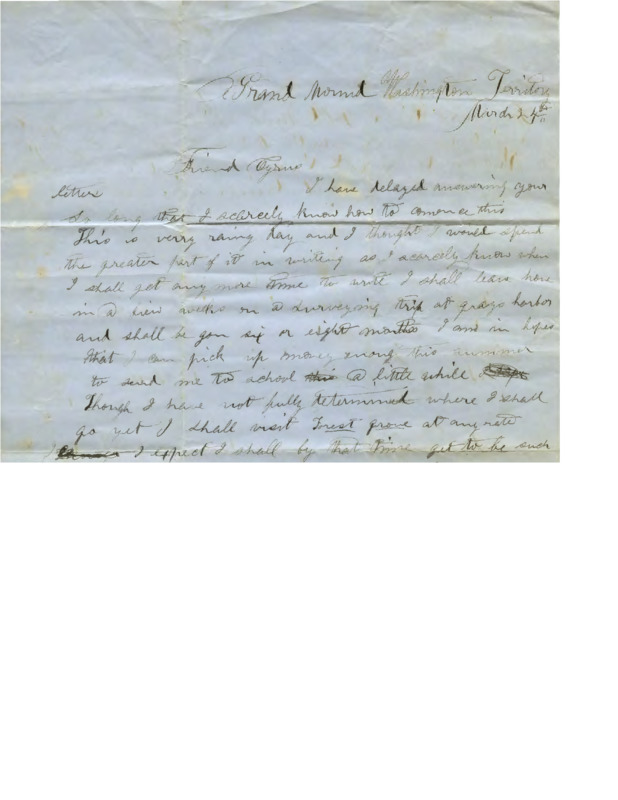 Grand Mound Washington Territory
March 24th
Friend Cyrus
I have delayed answering your
letters
so long that I scarcely know how to comence this
This is verry rainy day and I thought I would spend
the greater part of it in writing as I scarcely know when
I shall get any more time to write I shall leave here
in a few weeks on a surveying trip at grays harbor
and shall be gon six or eight months I am in hopes
that I can pick up money enoug this summer
to send me to school this a little while
Though I have not fully determined where I shall
go yet I shall visit Forest grove at any rate
I expect I shall by that time get to be such